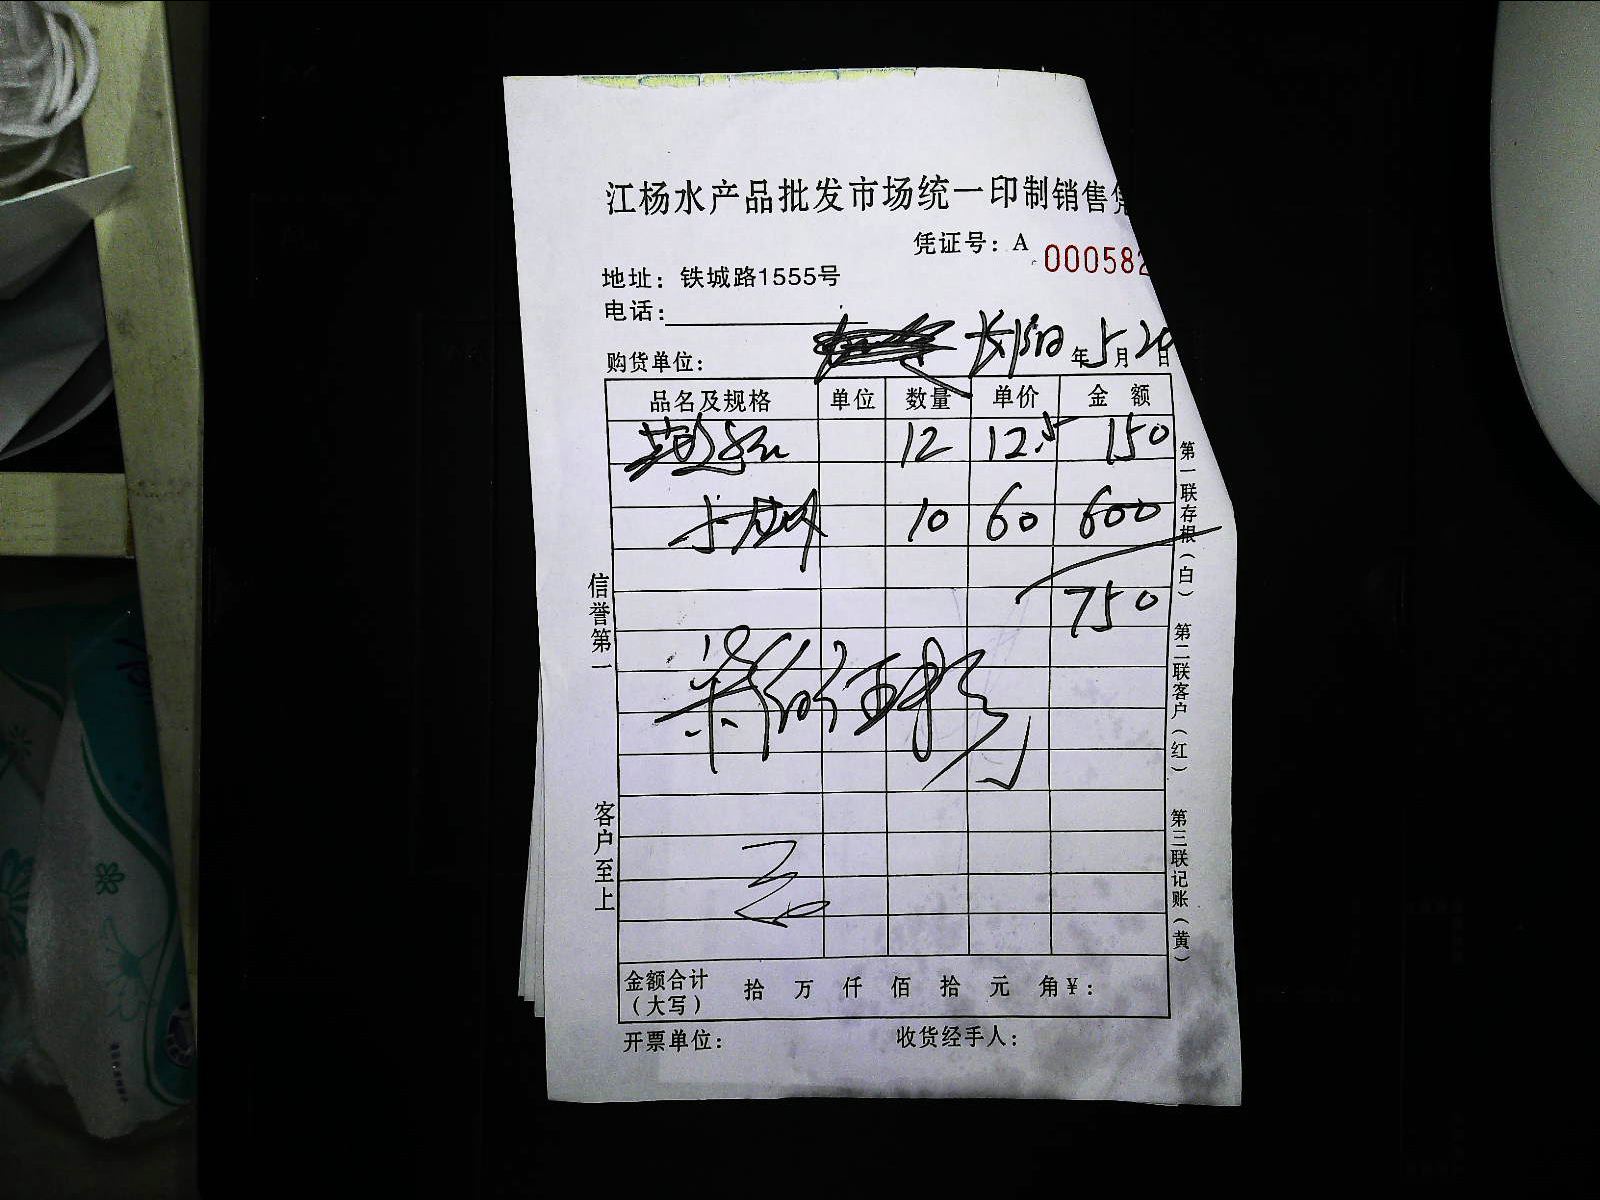 江杨水产品批发市场统一印制销售
凭证号：A 000582
地址：铁城路1555号
电话：
购货单位： 年5月20日
品名及规格 单位 数量 单价 金额
12 12.5 150
10 60 600
750
信誉第一
客户至上
第一联存根（白）
第二联客户（红）
第三联记账（黄）
金额合计（大写） 拾 万 仟 佰 拾 元 角 ¥：
开票单位： 收货经手人：